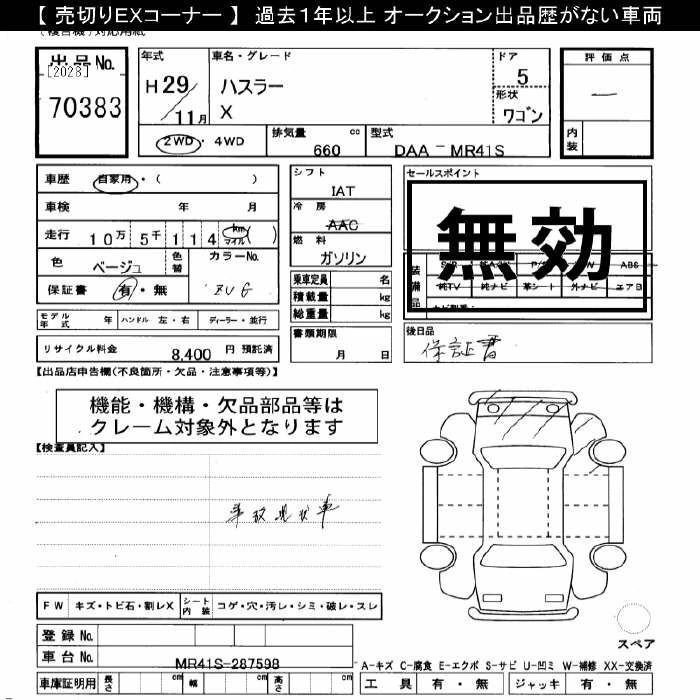 【 売切りEXコーナー 】 過去１年以上 オークション出品歴がない車両
出品No.
[2028]
70383
年式
H 29 / 11 月
車名・グレード
ハスラー
X
ドア
5
形状
ワゴン
評価点
―
内装
2WD ・ 4WD
排気量 660 cc
型式 DAA － MR41S
車歴 自家用・( )
車検 年 月
走行 10万 5千 1 1 4 km マイル ( )
色 ベージュ 色替 カラーNo. ZVG
保証書 有・無
シフト
IAT
冷房
AAC
燃料
ガソリン
乗車定員 名
積載量 kg
総重量 kg
セールスポイント
無効
装備品
ABS
純TV 純ナビ 革シート 外ナビ エアB
モデル年式 年 ハンドル 左・右 ディーラー・並行
書類期限
月 日
後日品
保証書
リサイクル料金 8,400 円 預託済
【出品店申告欄(不良箇所・欠品・注意事項等)】
機能・機構・欠品部品等は
クレーム対象外となります
【検査員記入】
事故現状車
FW キズ・トビ石・割レX シート内装 コゲ・穴・汚レ・シミ・破レ・スレ
登録 No.
車台 No. MR41S-287598
スペア
A-キズ C-腐食 E-エクボ S-サビ U-凹ミ W-補修 XX-交換済
車庫証明用 長さ cm 幅 cm 高さ cm
工具 有・無 ジャッキ 有・無